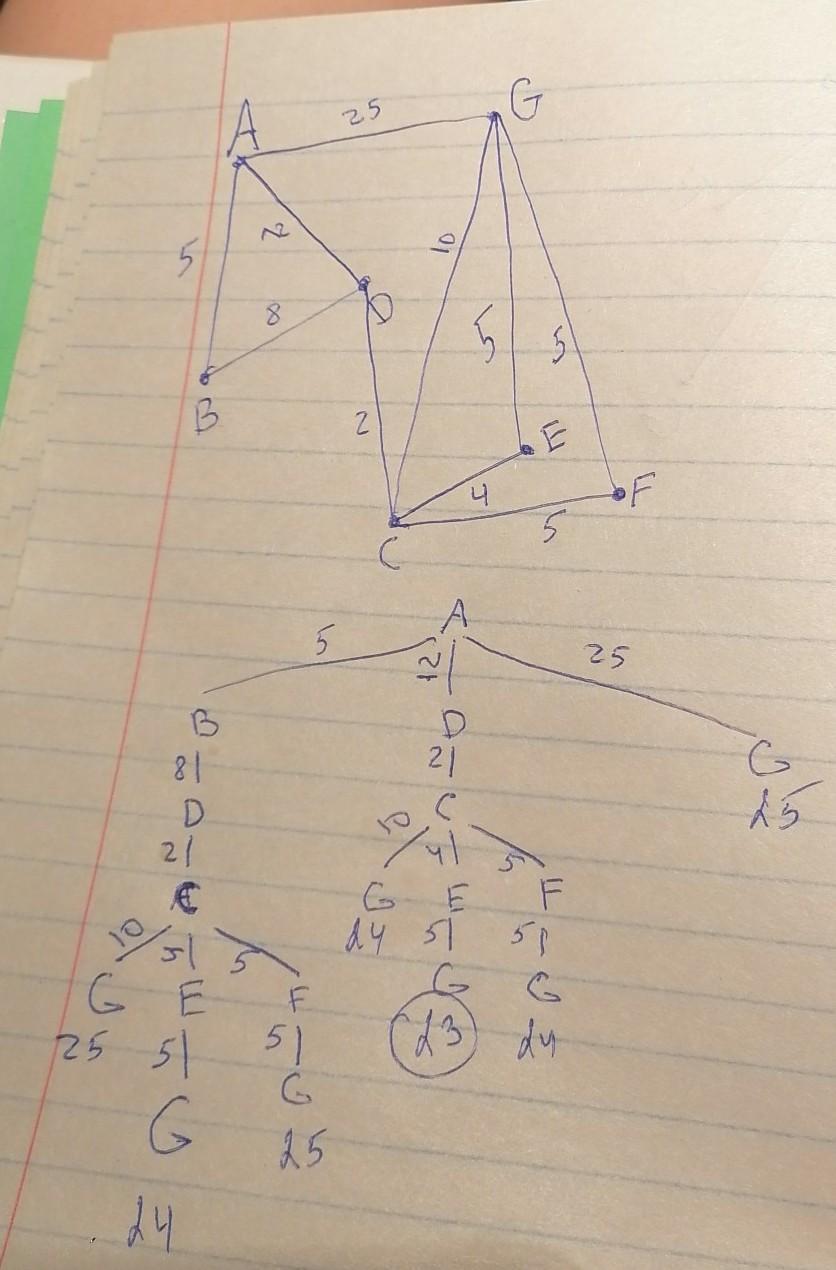 A 25 G
5 12 10
8 D 5 5
B 2 E
4 F
C 5
A
5 12 25
B D G
8 2 25
D C
2 10 4 5
C G E F
10 5 5 24 5 5
G E F G G
25 5 5 23 24
G G
25
24